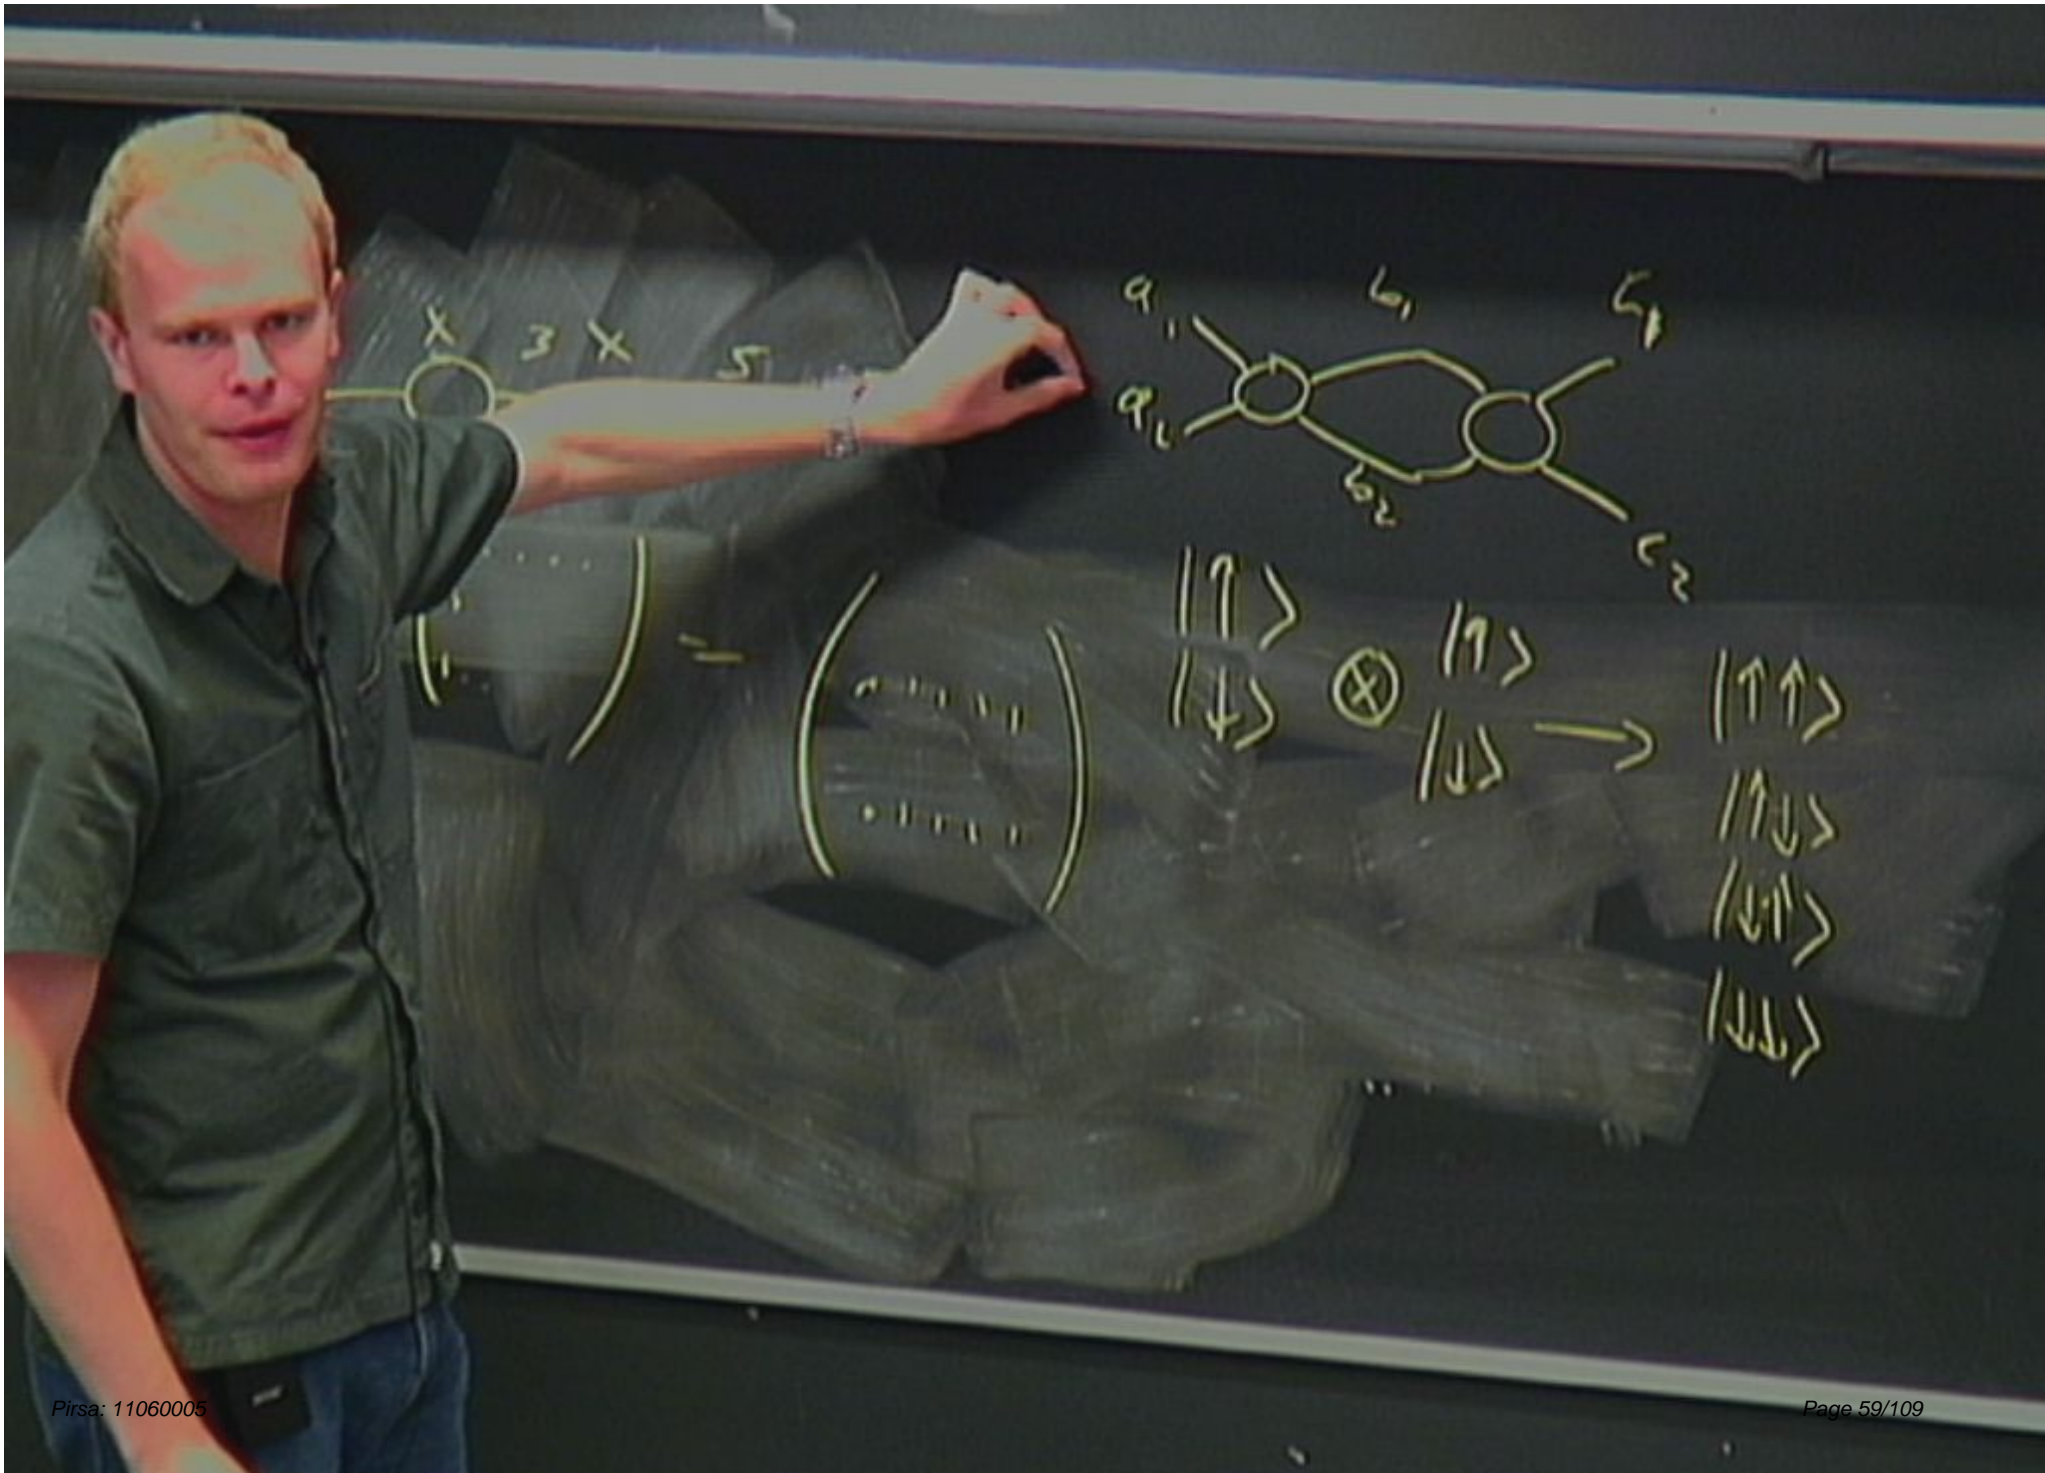 X 3 X 5
a₁ b₁ c₁
a₂ b₂ c₂
=
|↑⟩ ⊗ |↑⟩ → |↑↑⟩
|↓⟩ |↓⟩ |↑↓⟩
|↓↑⟩
|↓↓⟩
Pirsa: 11060005
Page 59/109